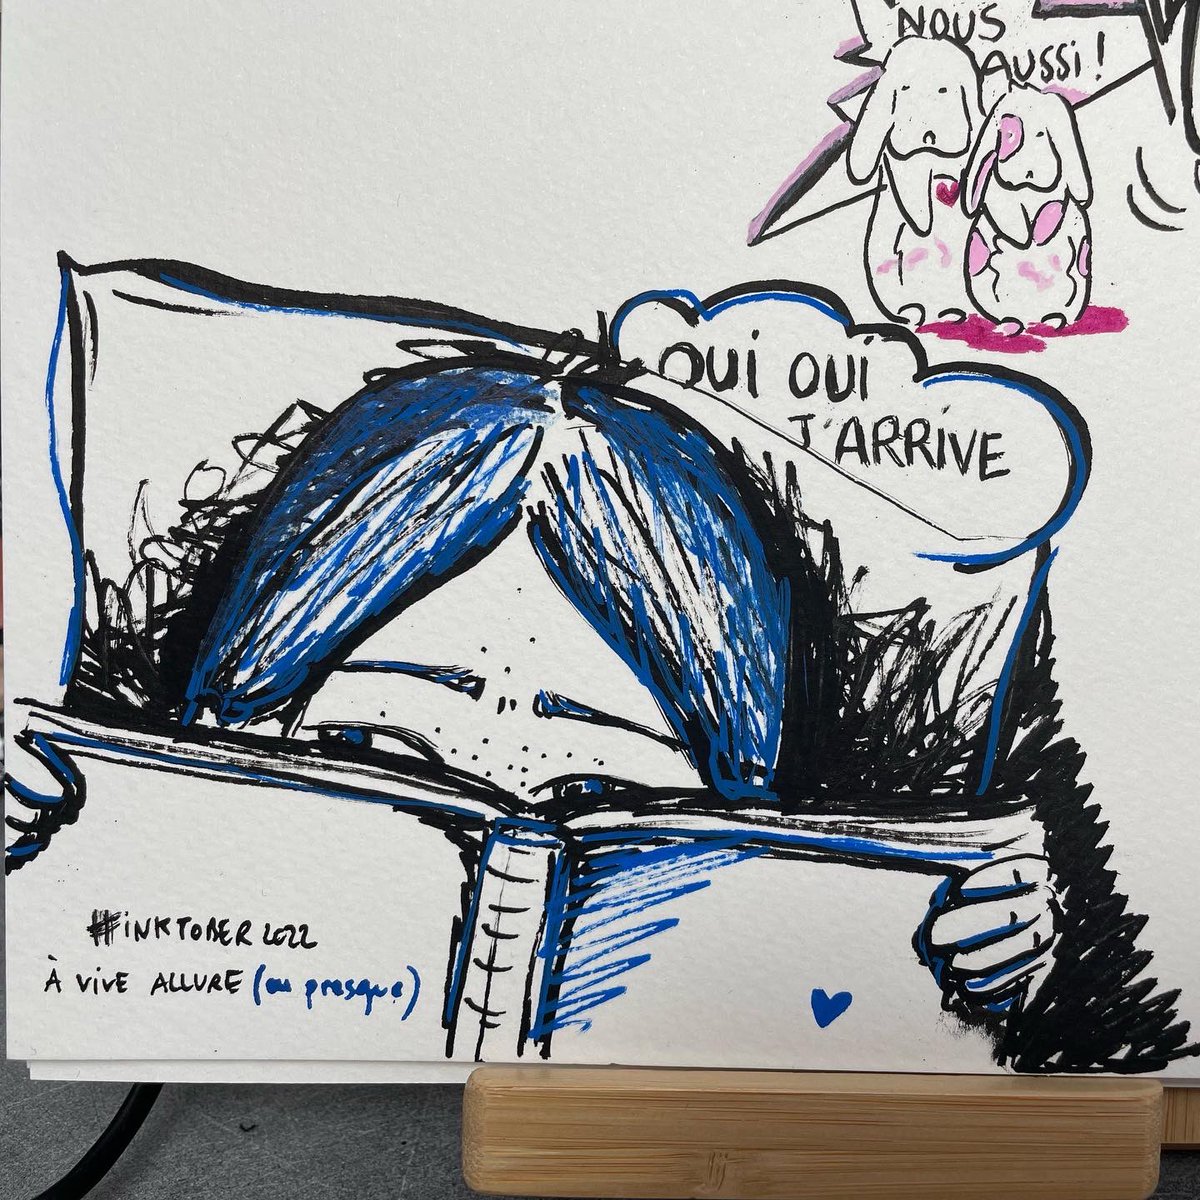 NOUS
AUSSi !
OUi OUi
J'ARRiVE
#iNKTOBER 2022
À ViVE ALLURE (ou presque)